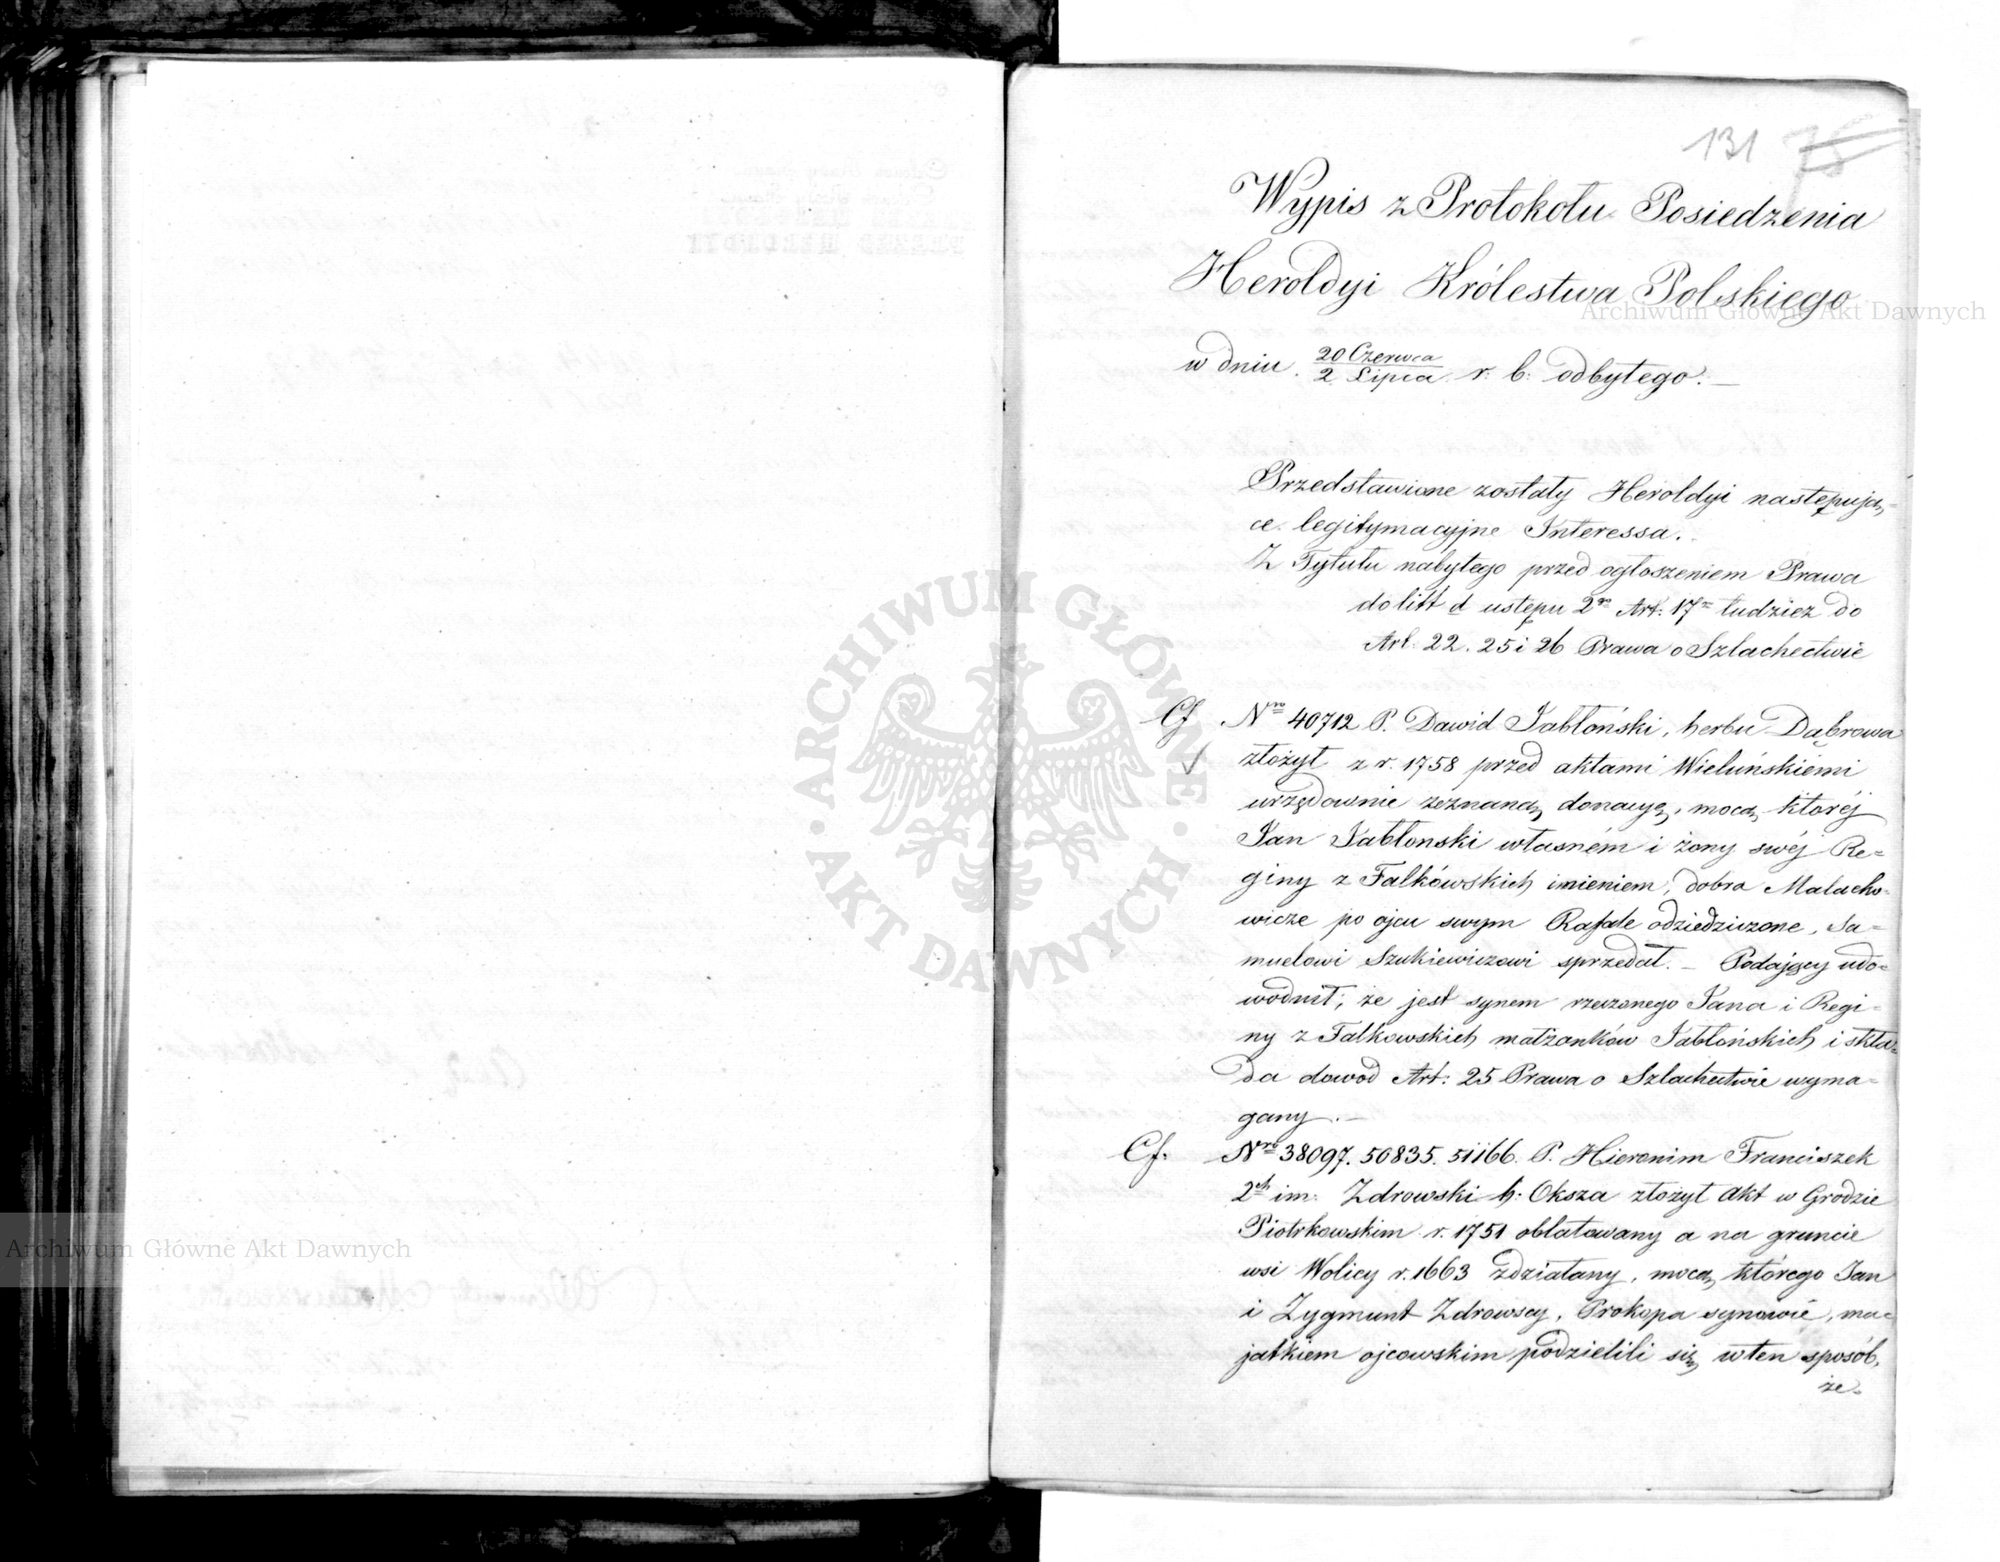 131 75
Wypis z Protokołu Posiedzenia
Heroldyi Królestwa Polskiego
w dniu 20 Czerwca / 2 Lipca r: b: odbytego. —
Przedstawione zostały Heroldyi następują=
ce legitymacyjne Interessa.
Z Tytułu nabytego przed ogłoszeniem Prawa
do litt d ustępu 2go Art: 17go tudzież do
Art: 22. 25 i 26 Prawa o Szlachectwie
Cf Nro 40712 P. Dawid Jabłoński, herbu Dąbrowa
złożył z r. 1758 przed aktami Wieluńskiemi
urzędownie zeznaną donacyę, mocą któréj
Jan Jabłonski własném i żony swéj Re=
giny z Falkówskich imieniem, dobra Malacho=
wicze po ojcu swym Rafale odziedziczone, Sa=
muelowi Szukiewiczowi sprzedał. — Podający udo=
wodnił, że jest synem rzeczonego Jana i Regi=
ny z Falkowskich małżonków Jabłońskich i skła=
da dowód Art: 25 Prawa o Szlachectwie wyma=
gany. —
Cf. Nro 38097. 50835. 51166. P. Hieronim Franciszek
2ch im: Zdrowski h: Oksza złożył akt w Grodzie
Piotrkowskim r. 1751 oblatowany a na gruncie
wsi Wolicy r. 1663 zdziałany, mocą którego Jan
i Zygmunt Zdrowscy, Prokopa synowie, ma=
jątkiem ojcowskim podzielili się w ten sposób,
że.
Archiwum Główne Akt Dawnych
Archiwum Główne Akt Dawnych
ARCHIWUM GŁÓWNE · AKT DAWNYCH ·